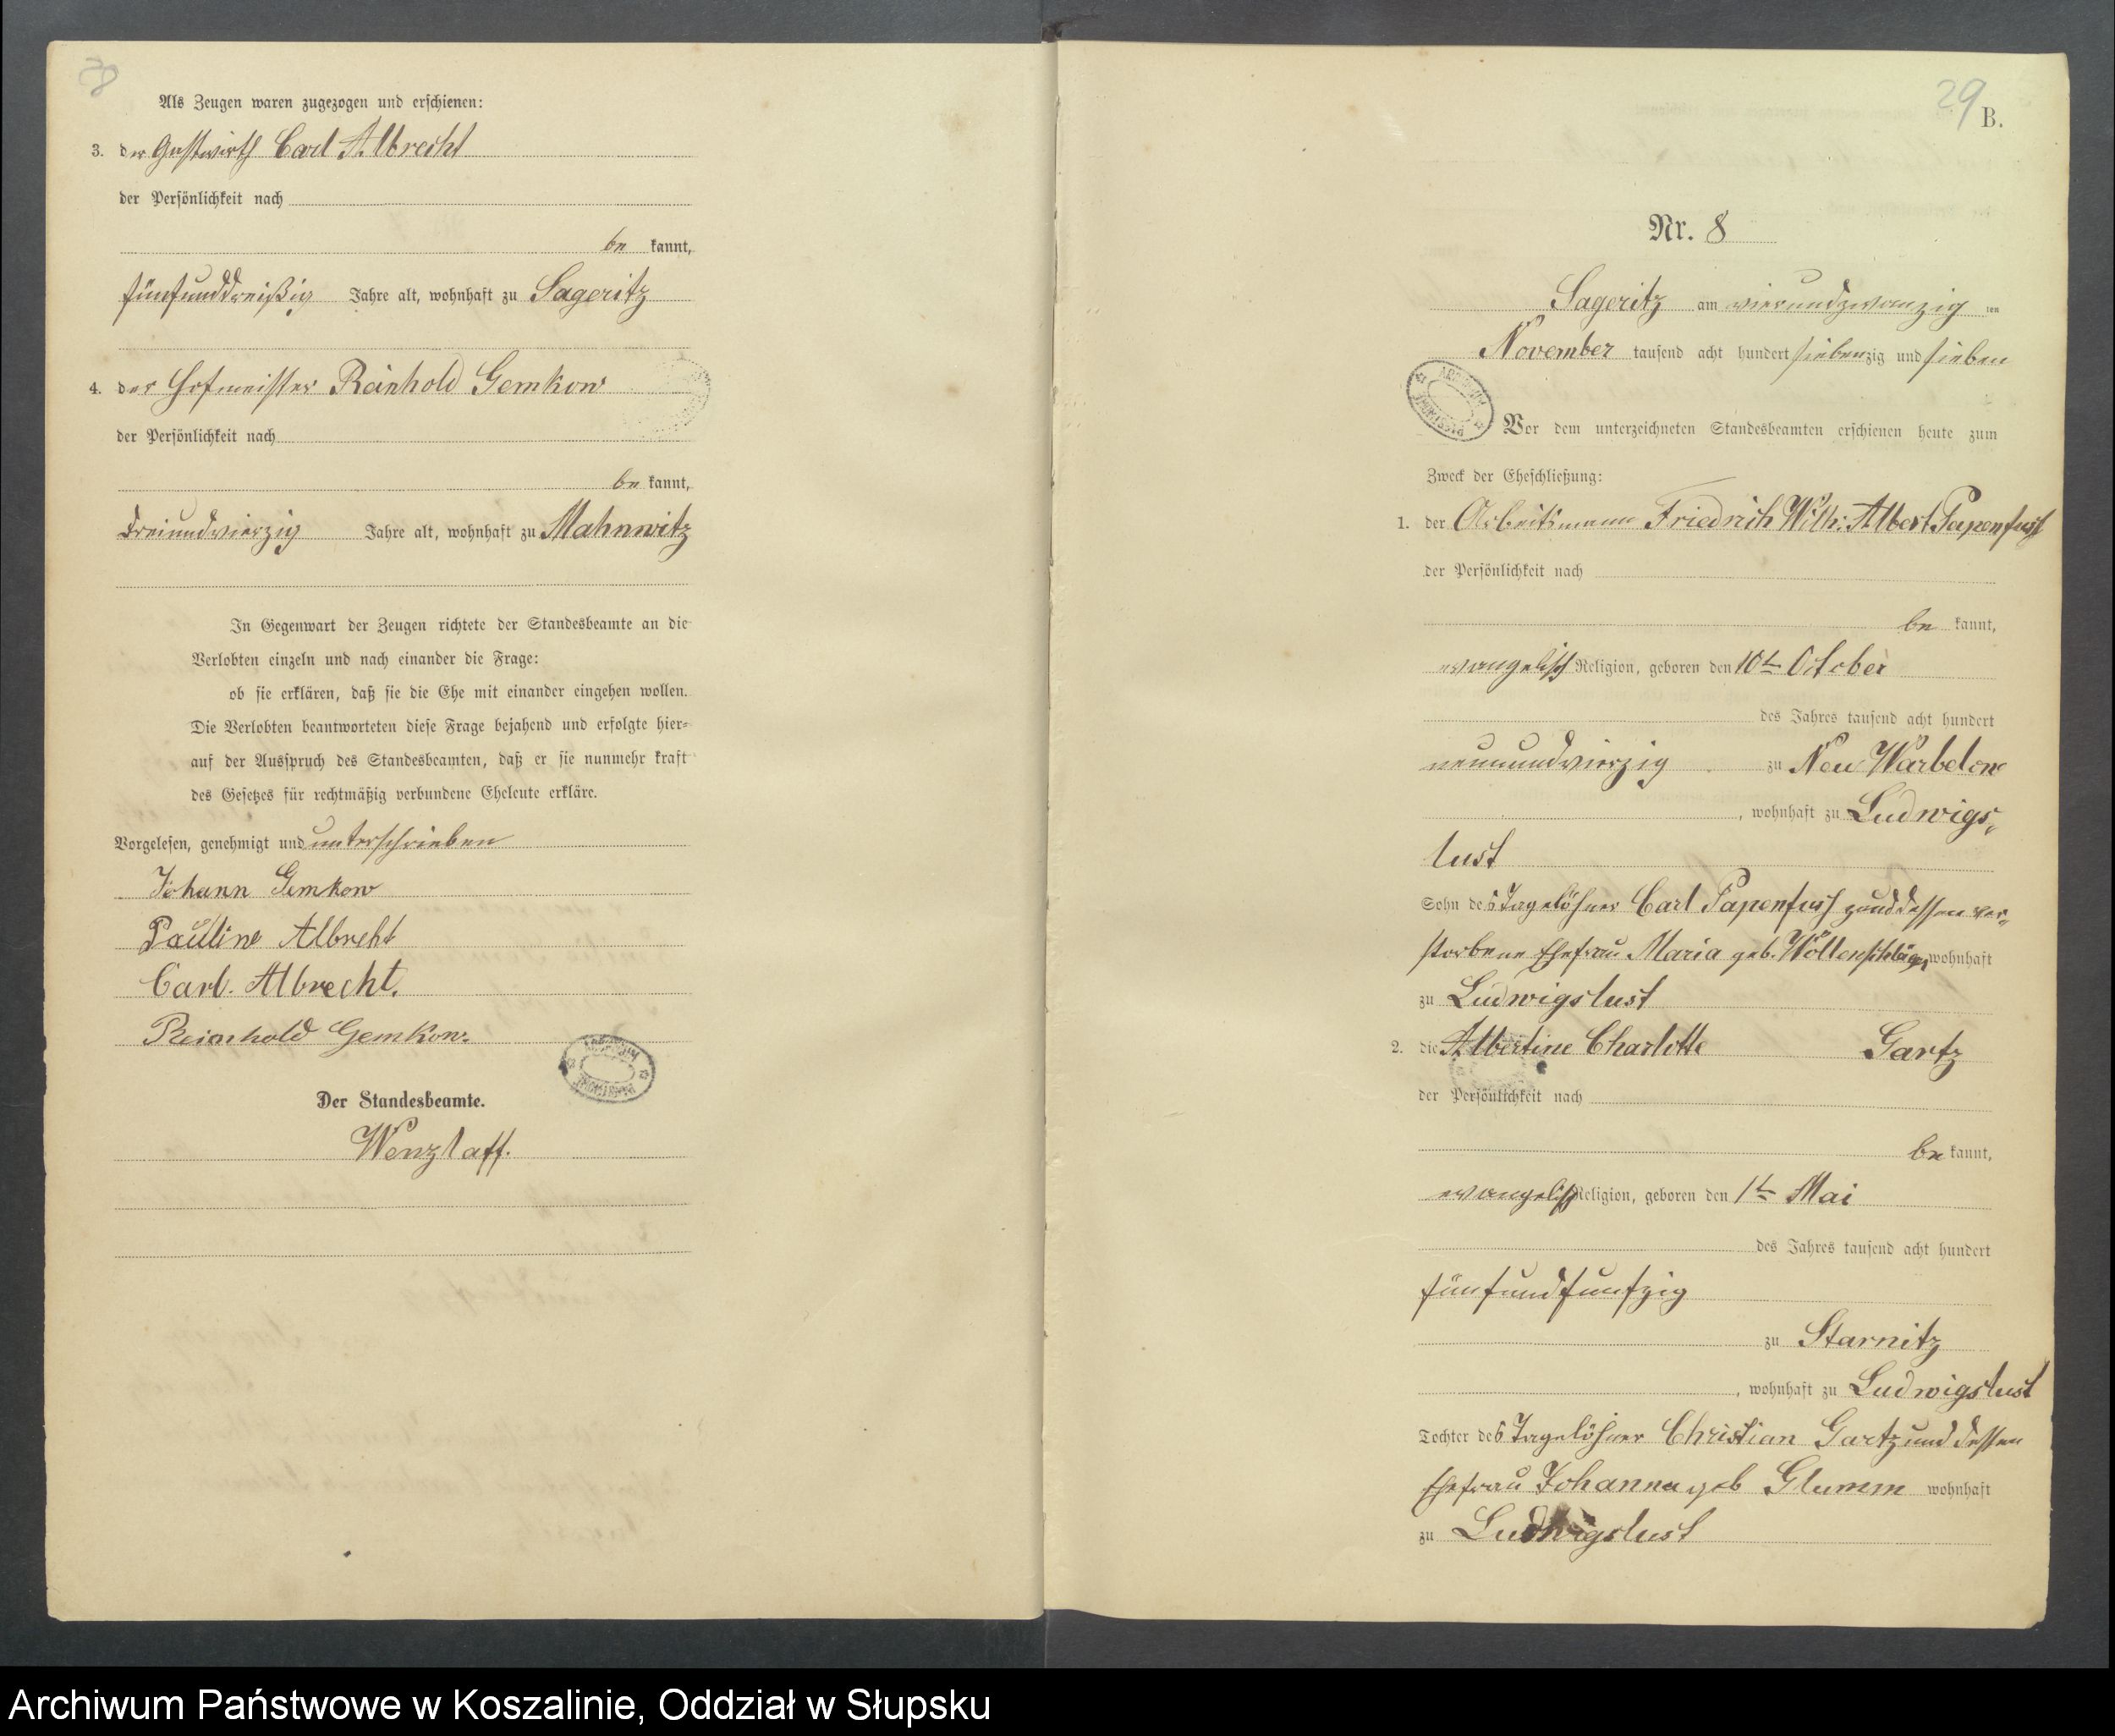 28
Als Zeugen waren zugezogen und erschienen:
3. der Gastwirth Carl Albrecht
der Persönlichkeit nach
be kannt,
fünfunddreißig Jahre alt, wohnhaft zu Sageritz
4. der Hofmeister Reinhold Gemkow
der Persönlichkeit nach
be kannt,
dreiundvierzig Jahre alt, wohnhaft zu Mahnwitz
In Gegenwart der Zeugen richtete der Standesbeamte an die
Verlobten einzeln und nach einander die Frage:
ob sie erklären, daß sie die Ehe mit einander eingehen wollen.
Die Verlobten beantworteten diese Frage bejahend und erfolgte hier-
auf der Ausspruch des Standesbeamten, daß er sie nunmehr kraft
des Gesetzes für rechtmäßig verbundene Eheleute erkläre.
Vorgelesen, genehmigt und unterschrieben
Johann Gemkow
Pauline Albrecht
Carl. Albrecht.
Reinhold Gemkow.
Der Standesbeamte.
Wenzlaff.
29
B.
Nr. 8
Sageritz am vierundzwanzig ten
November tausend acht hundert siebenzig und sieben
ARCHIWUM PAŃSTWOWE
Vor dem unterzeichneten Standesbeamten erschienen heute zum
Zweck der Eheschließung:
1. der Arbeitsmann Friedrich Wilh: Albert Papenfuß
der Persönlichkeit nach
be kannt,
evangelisch Religion, geboren den 10ten October
des Jahres tausend acht hundert
neunundvierzig zu Neu Warbelow
, wohnhaft zu Ludwigs-
lust
Sohn des Tagelöhner Carl Papenfuß und dessen ver-
storbene Ehefrau Maria geb. wohnhaft
zu Ludwigslust
2. die Albertine Charlotte Gartz
der Persönlichkeit nach
be kannt,
evangelisch Religion, geboren den 1ten Mai
des Jahres tausend acht hundert
fünfundfunfzig
zu Starnitz
, wohnhaft zu Ludwigslust
Tochter des Tagelöhner Christian Gartz und dessen
Ehefrau Johanna geb Glumm wohnhaft
zu Ludwigslust
Archiwum Państwowe w Koszalinie, Oddział w Słupsku